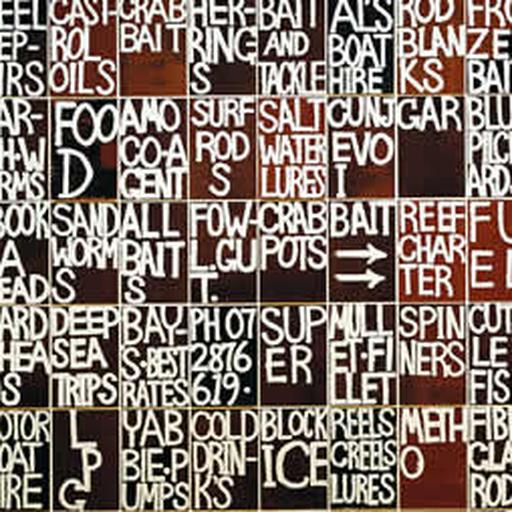 EEL
EP-
IRS
CAST
ROL
OILS
CRAB
BAIT
HER-
RING
S
BAIT
AND
TACKLE
AL'S
BOAT
HIRE
ROD
BLAN
KS
FRO
ZE
BAI
AR-
H-W
RMS
FOO
D
AMO
CO-A
GENT
SURF
ROD
S
SALT
WATER
LURES
CUNJ
EVO
I
GAR
BLU
PILC
ARD
OOK
A
EADS
SAND
WORM
S
ALL
BAIT
S
FOW-
L.GU
T.
CRAB
POTS
BAIT
→
→
REEF
CHAR
TER
FU
EL
ARD
HEA
S
DEEP
SEA
TRIPS
BAY-
S-BEST
RATES
PH 07
2876
619.
SUP
ER
MULL
ET-FI
LLET
SPIN
NERS
CUT
LE
FIS
OTOR
OAT
IRE
L
P
G
YAB
BIE.P
UMPS
COLD
DRIN-
K'S
BLOCK
ICE
REELS
CREELS
LURES
METH
O
FIB
GLA
ROD